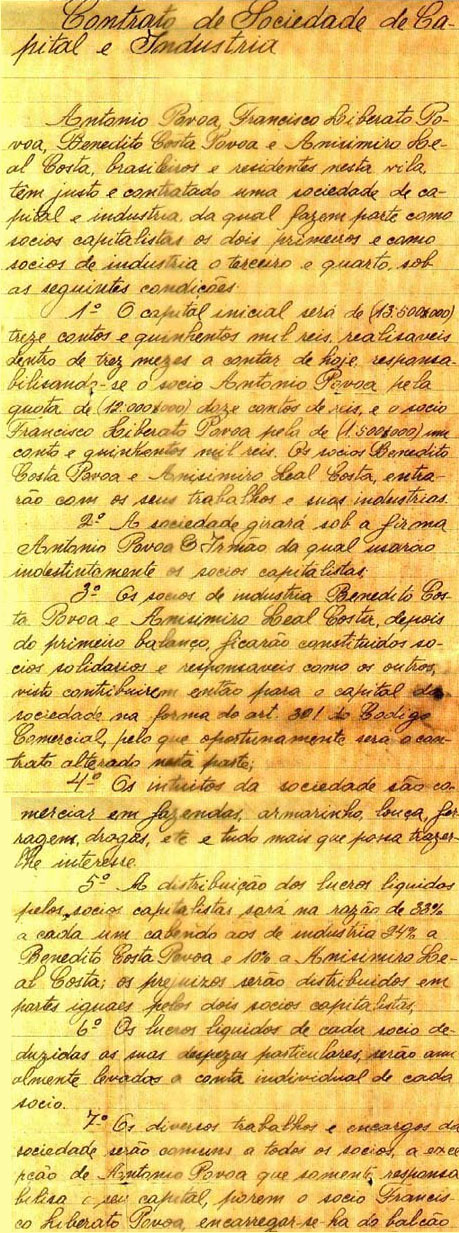 Contracto de Sociedade de Ca-
pital e Industria
Antonio Povoa, Francisco Liberato Po-
voa, Benedito Costa Povoa e Anisimiro Le-
al Costa, brasileiros e residentes nesta vila,
têm justo e contratado uma sociedade de ca-
pital e industria, da qual fazem parte como
socios capitalistas os dois primeiros e como
socios de industria o terceiro e quarto, sob
as seguintes condições.
1º O capital inicial será de (13.500$000)
treze contos e quinhentos mil reis, realisaveis
dentro de trez mezes a contar de hoje, responsa-
bilisando-se o socio Antonio Povoa pela
quota de (12.000$000) doze contos de reis, e o socio
Francisco Liberato Povoa pelo de (1.500$000) um
conto e quinhentos mil reis. Os socios Benedito
Costa Povoa e Anisimiro Leal Costa, entra-
rão com os seus trabalhos e suas industrias.
2º A sociedade girará sob a firma
Antonio Povoa & Irmão da qual usarão
indestintamente os socios capitalistas.
3º Os socios de industria Benedito Cos-
ta Povoa e Anisimiro Leal Costa, depois
do primeiro balanço, ficarão constituidos so-
cios solidarios e responsaveis como os outros,
visto contribuirem então para o capital da
sociedade na forma do art. 301 do Codigo
Comercial, pelo que oportunamente será o con-
trato alterado nesta parte;
4º Os intuitos da sociedade são co-
merciar em fazendas, armarinho, louça, fer-
ragem, drogas, etc e tudo mais que possa trazer-
lhe interesse.
5º A distribuição dos lucros liquidos
pelos socios capitalistas será na razão de 33%
a cada um cabendo aos de industria 24% a
Benedito Costa Povoa e 10% a Anisimiro Le-
al Costa; os prejuizos serão distribuidos em
partes iguaes pelos dois socios capitalistas,
6º Os lucros liquidos de cada socio de-
duzidas as suas despezas particulares, serão anu
almente levados a conta individual de cada
socio.
7º Os diversos trabalhos e encargos da
sociedade serão comuns a todos os socios, a exce
pção de Antonio Povoa que somente responsa
bilisa o seu capital, porem o socio Francis-
co Liberato Povoa, encarregar-se-ha do balcão